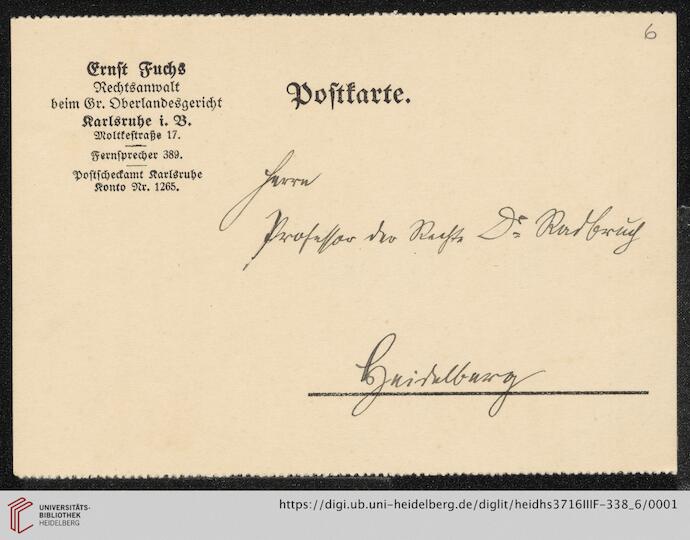 6
Ernst Fuchs
Rechtsanwalt
beim Gr. Oberlandesgericht
Karlsruhe i. B.
Moltkestraße 17.
Fernsprecher 389.
Postscheckamt Karlsruhe
Konto Nr. 1265.
Postkarte.
Herrn
Professor der Rechte Dr. Radbruch
Heidelberg
UNIVERSITÄTS-
BIBLIOTHEK
HEIDELBERG
https://digi.ub.uni-heidelberg.de/diglit/heidhs3716IIIF-338_6/0001